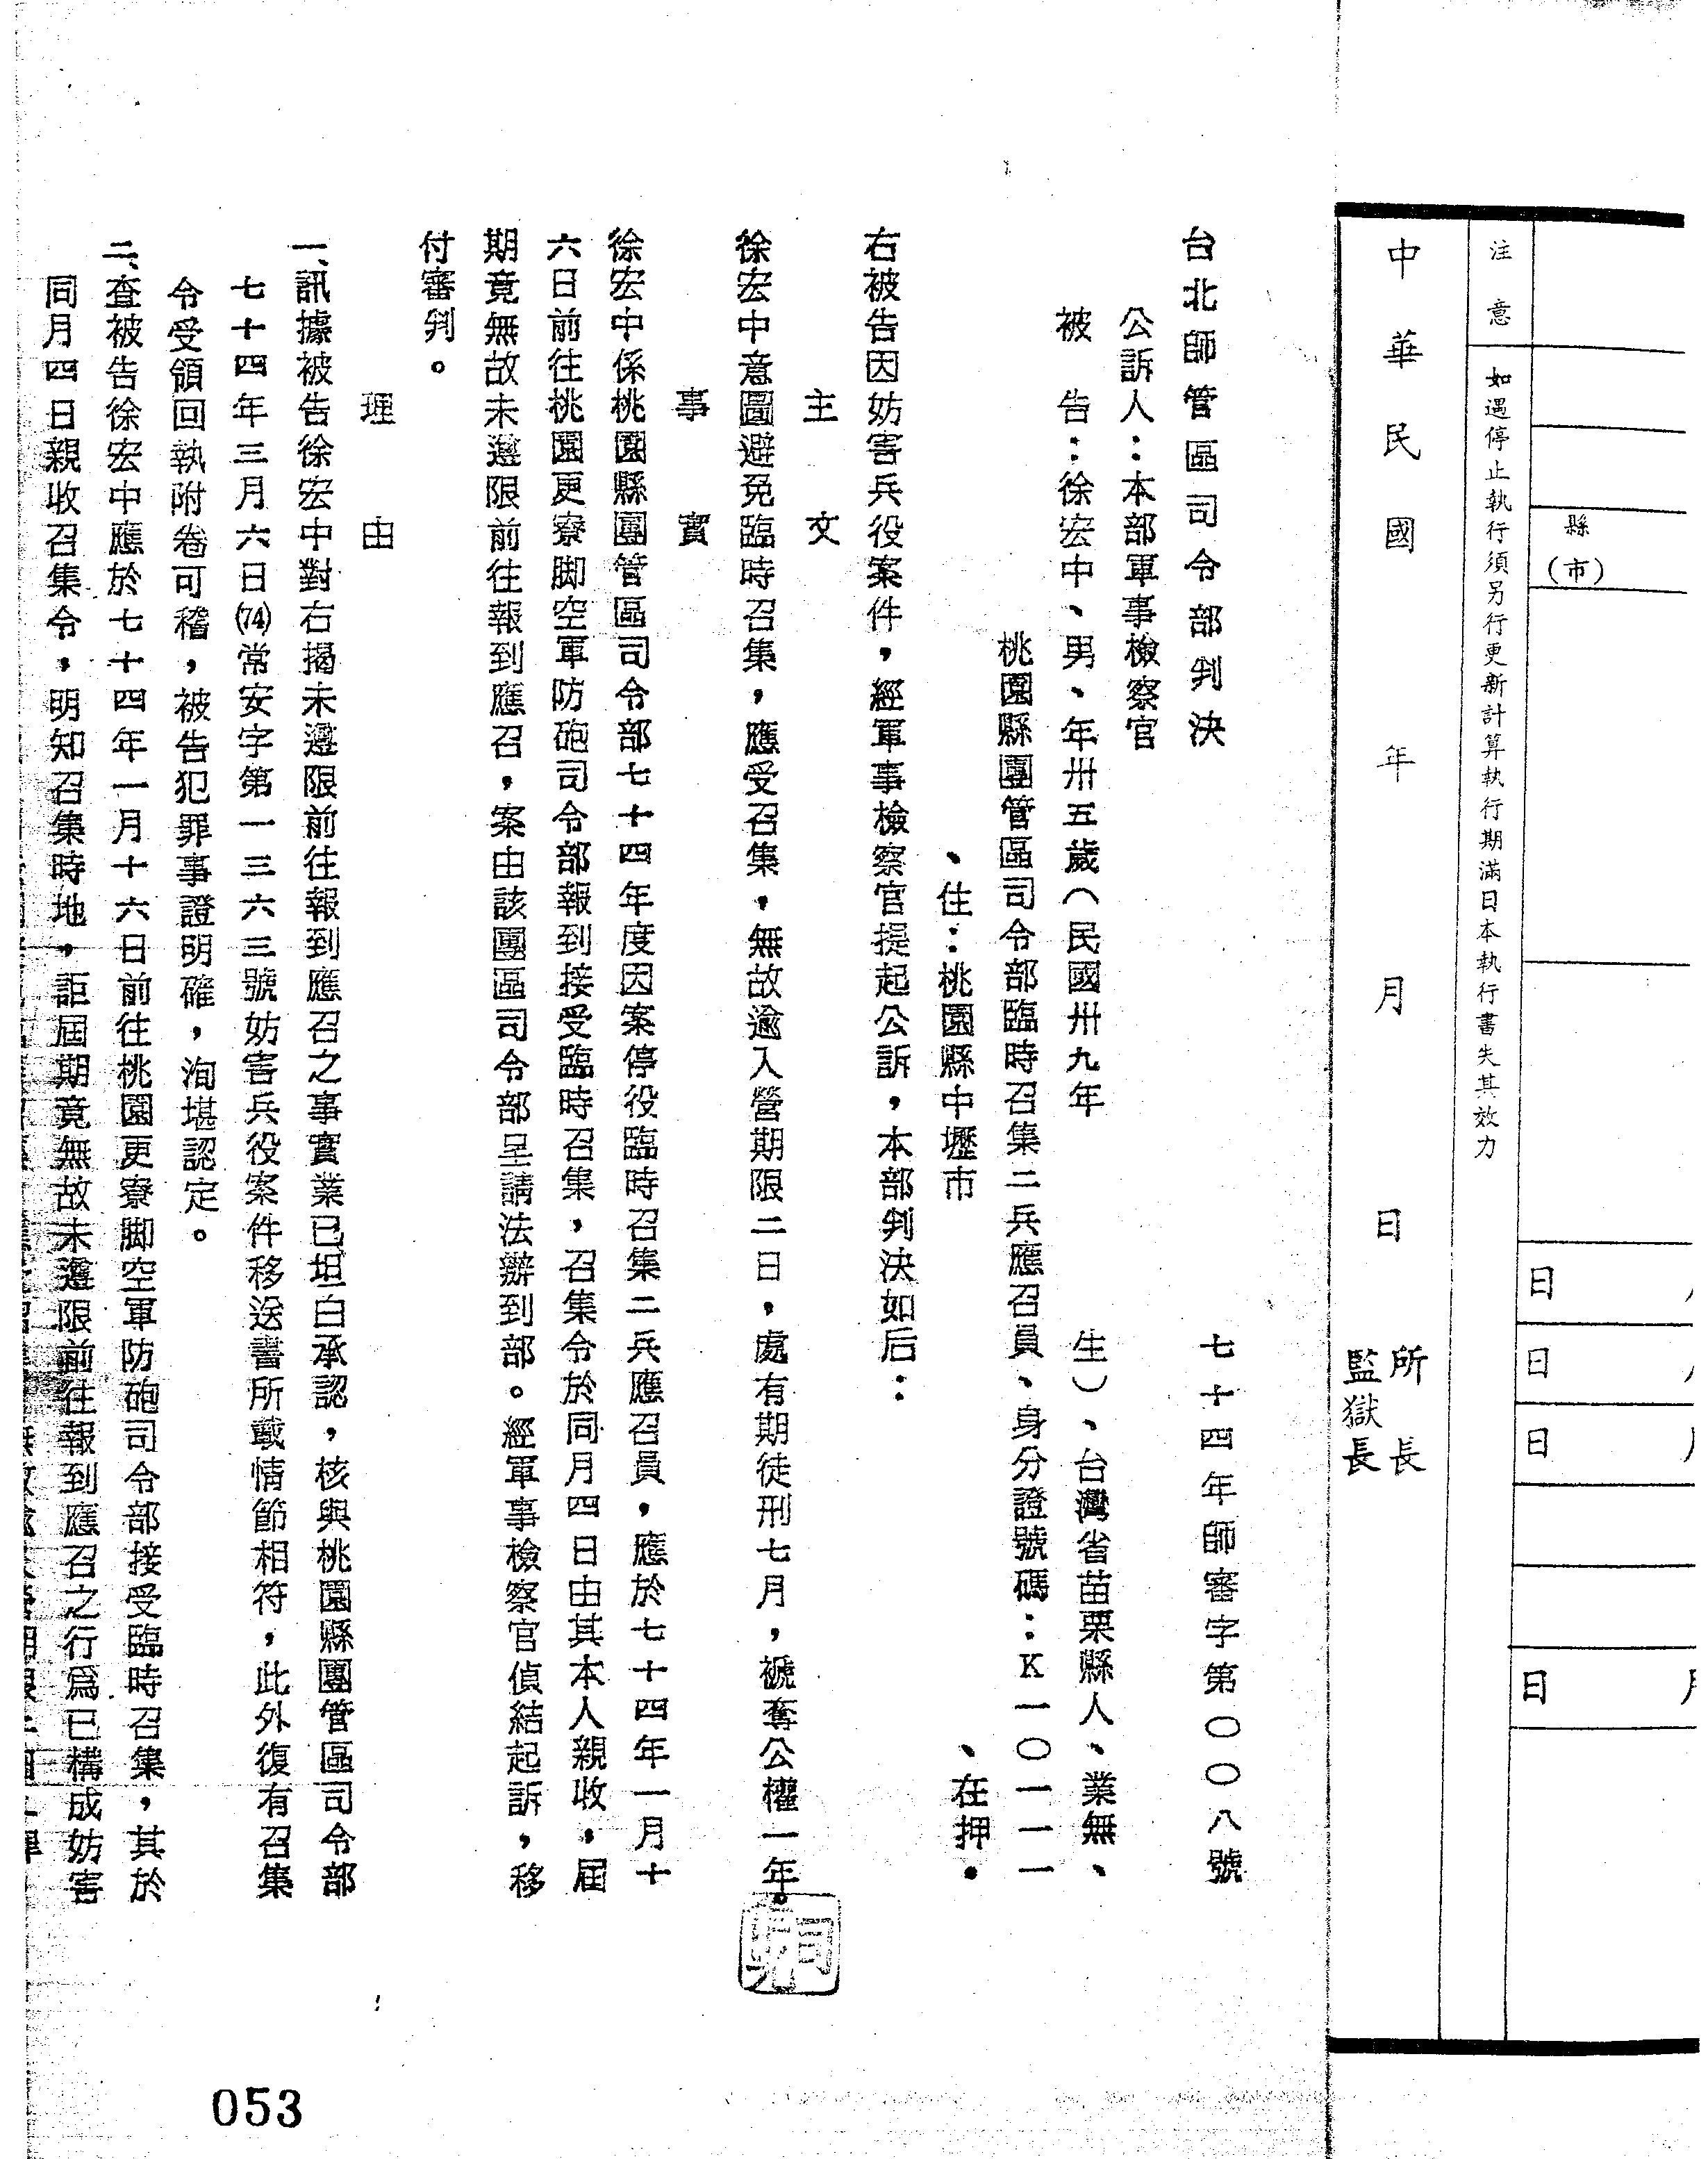 縣
（市）
日
日
日
日 月
注意
如遇停止執行須另行更新計算執行期滿日本執行書失其效力
中華民國 年 月 日
所長
監獄長
台北師管區司令部判決
七十四年師審字第〇〇八號
公訴人：本部軍事檢察官
被告：徐宏中、男、年卅五歲（民國卅九年 生）、台灣省苗栗縣人、業無、
桃園縣團管區司令部臨時召集二兵應召員、身分證號碼：K一〇一一一
、住：桃園縣中壢市 、在押。
右被告因妨害兵役案件，經軍事檢察官提起公訴，本部判決如后：
主文
徐宏中意圖避免臨時召集，應受召集，無故逾入營期限二日，處有期徒刑七月，褫奪公權一年。
事實
徐宏中係桃園縣團管區司令部七十四年度因案停役臨時召集二兵應召員，應於七十四年一月十
六日前往桃園更寮脚空軍防砲司令部報到接受臨時召集，召集令於同月四日由其本人親收，屆
期竟無故未遵限前往報到應召，案由該團區司令部呈請法辦到部。經軍事檢察官偵結起訴，移
付審判。
理由
一、訊據被告徐宏中對右揭未遵限前往報到應召之事實業已坦白承認，核與桃園縣團管區司令部
七十四年三月六日(74)常安字第一三六三號妨害兵役案件移送書所載情節相符，此外復有召集
令受領回執附卷可稽，被告犯罪事證明確，洵堪認定。
二、查被告徐宏中應於七十四年一月十六日前往桃園更寮脚空軍防砲司令部接受臨時召集，其於
同月四日親收召集令，明知召集時地，詎屆期竟無故未遵限前往報到應召之行爲已構成妨害
053